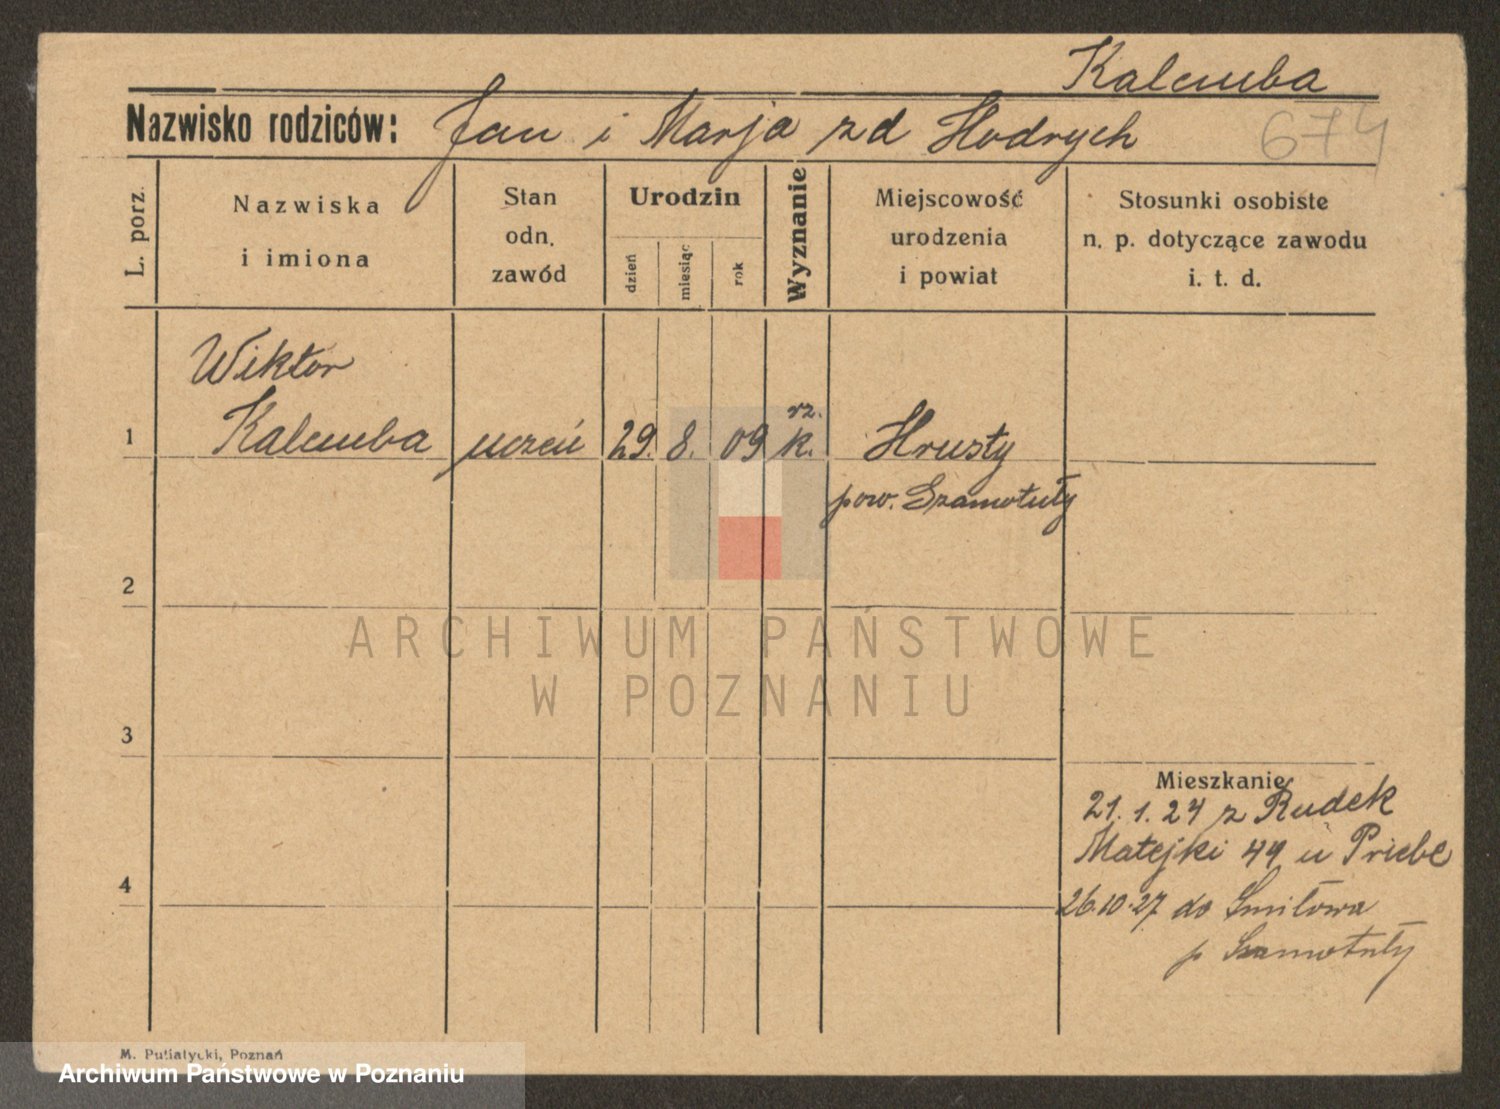 Kalemba
Nazwisko rodziców: Jan i Marja zd Hodrych
674
L. porz.
Nazwiska
i imiona
Stan
odn.
zawód
Urodzin
dzień
miesiąc
rok
Wyznanie
Miejscowość
urodzenia
i powiat
Stosunki osobiste
n. p. dotyczące zawodu
i. t. d.
Wiktor
1 Kalemba uczeń 29. 8. 09 rz. k. Hrusty
pow. Szamotuły
2
ARCHIWUM PAŃSTWOWE
W POZNANIU
3
Mieszkanie
21. 1. 24 z Rudek
Matejki 49 u Priebe
4
26.10.27 do Smiłowa
p Szamotuły
M. Putiatycki, Poznań
Archiwum Państwowe w Poznaniu